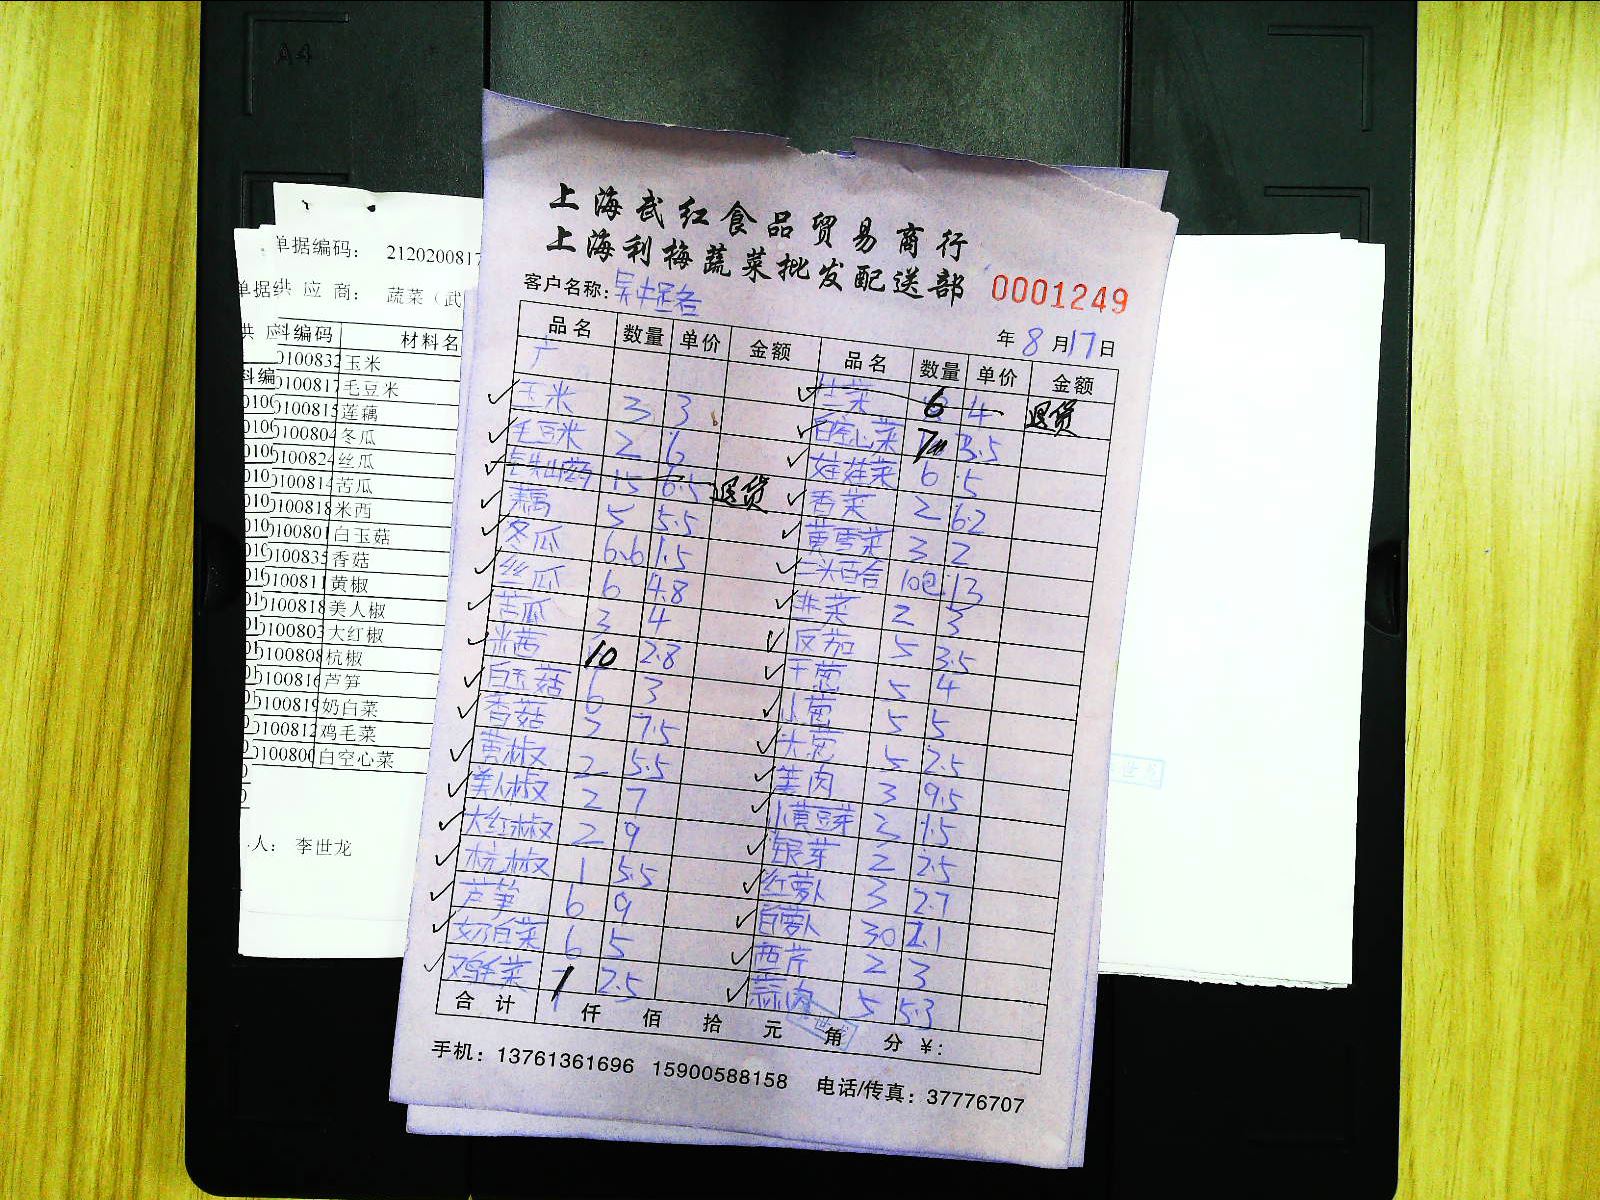 A4
单据编码： 2120200817
单据供 应 商： 蔬菜（武
供 应 料编码 材料名
料编
0100832 玉米
0100817 毛豆米
0100815 莲藕
0100804 冬瓜
0100824 丝瓜
0100814 苦瓜
0100818 米西
0100801 白玉菇
0100835 香菇
0100811 黄椒
0100818 美人椒
0100803 大红椒
0100808 杭椒
0100816 芦笋
0100819 奶白菜
0100812 鸡毛菜
0100800 白空心菜
人： 李世龙
上海武红食品贸易商行
上海利梅蔬菜批发配送部
0001249
客户名称：
年 8 月 17 日
品名 数量 单价 金额 品名 数量 单价 金额
广
玉米 3 3
毛豆米 2 6
山药 15 6.5 退货
藕 5 5.5
冬瓜 6.6 1.5
丝瓜 6 4.8
苦瓜 3 4
米茜 10 2.8
白玉菇 6 3
香菇 3 7.5
黄椒 2 5.5
美人椒 2 7
大红椒 2 9
杭椒 1 5.5
芦笋 6 9
奶白菜 6 5
鸡毛菜 1 2.5
生菜 6 4 退货
白空心菜 7 3.5
娃娃菜 6 5
香菜 2 6.2
黄雪菜 3 2
兰州百合 10包 13
韭菜 2 3
反茄 5 3.5
干葱 5 4
小葱 5 5
大葱 5 2.5
姜肉 3 9.5
小黄豆芽 3 1.5
银芽 2 2.5
红萝卜 3 2.7
白萝卜 30 1.1
西芹 2 3
蒜肉 5 5.3
合计 仟 佰 拾 元 角 分 ￥：
手机：13761361696 15900588158 电话/传真：37776707